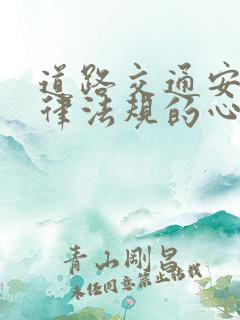 道路交通安
律法规的心
青山刚昌
未经同意禁止转载